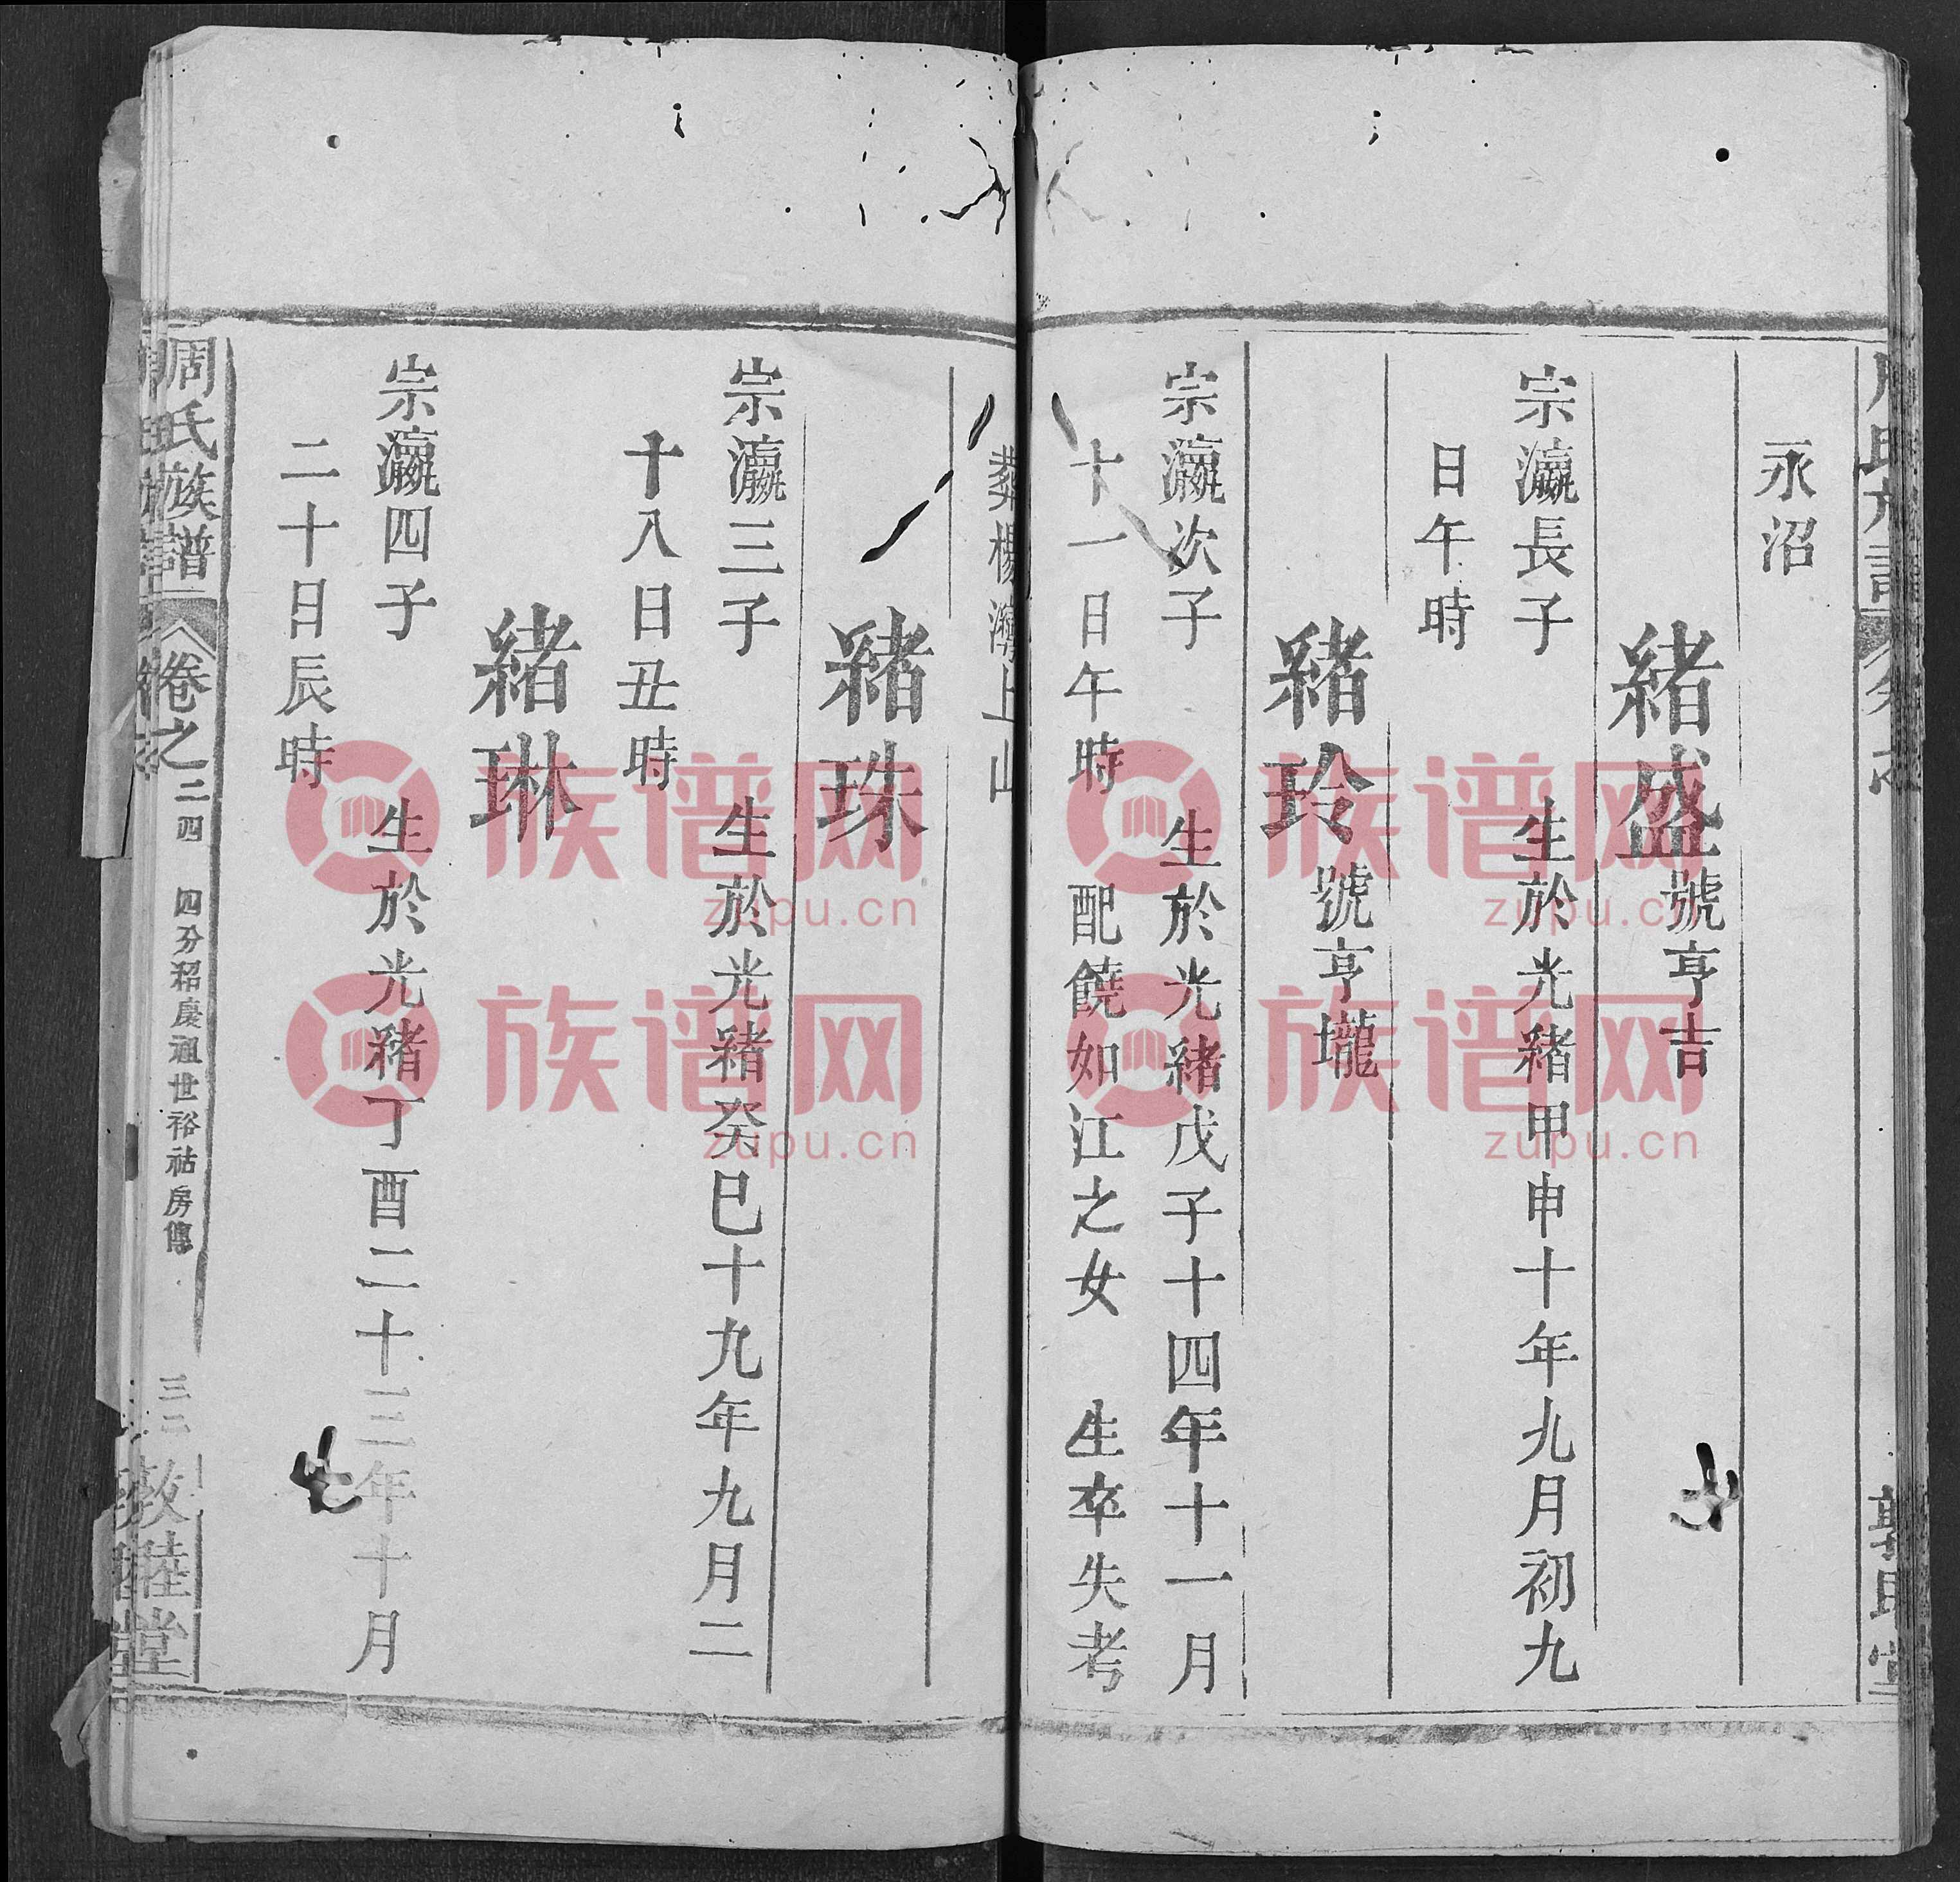 永沼
緒盛號亨吉
宗瀛長子 生於光緒甲申十年九月初九
日午時
緒玲號亨壠
宗瀛次子 生於光緒戊子十四年十一月
十一日午時 配饒如江之女 生卒失考
葬楊灣上山
緒珠
宗瀛三子 生於光緒癸巳十九年九月二
十八日丑時
緒琳
宗瀛四子 生於光緒丁酉二十三年十月
二十日辰時
周氏族譜 卷之二四 四分招慶祖世裕祜房傳 三二 敦睦堂
族谱网
zupu.cn
族谱网
zupu.cn
族谱网
zupu.cn
族谱网
zupu.cn